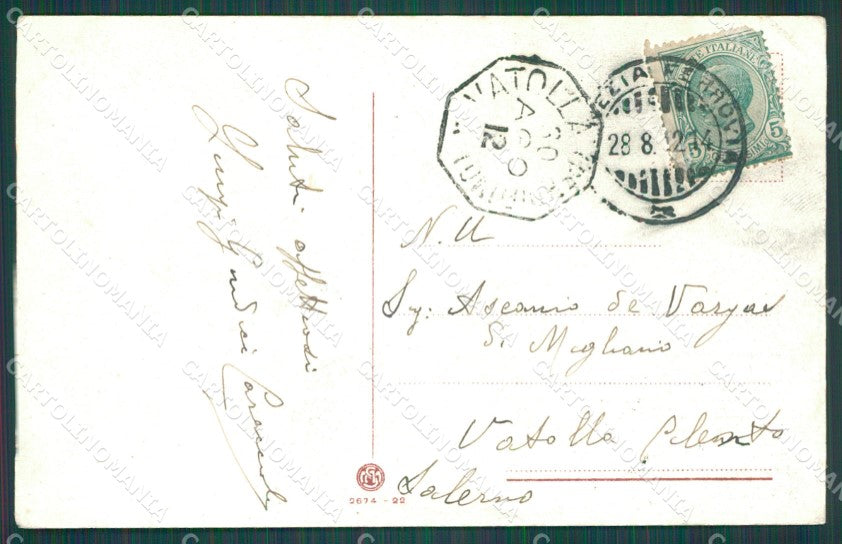 Saluti affettuosi
Luigi Giudici Caracciolo
VATOLLA
30
AGO
12
FERROVIA
28 8. 12. 14
E ITALIANE
5
5
N. U
Sg: Ascanio de Vargas
S. Migliano
Vatolla Cilento
Salerno
2674 - 22
CARTOLINOMANIA